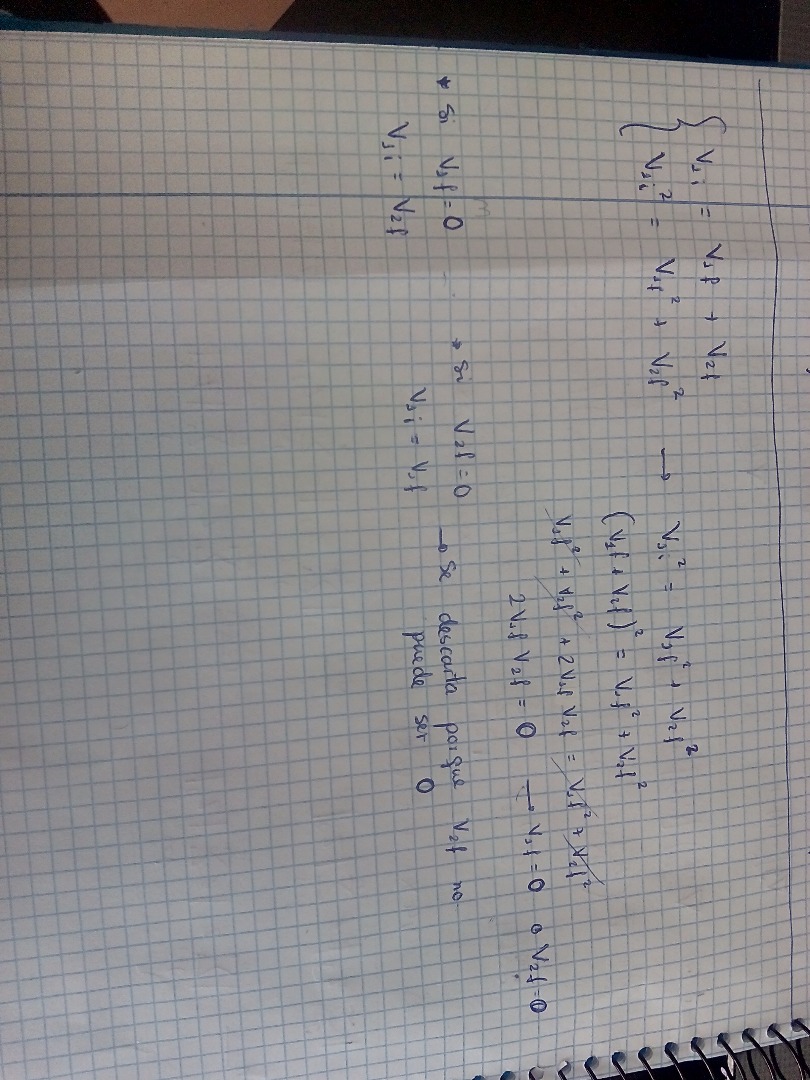 V₁i = V₁f + V₂f
V₁i² = V₁f² + V₂f² → V₁i² = V₁f² + V₂f²
(V₁f + V₂f)² = V₁f² + V₂f²
V₁f² + V₂f² + 2V₁f V₂f = V₁f² + V₂f²
2V₁f V₂f = 0 → V₁f = 0 o V₂f = 0
* Si V₁f = 0
V₁i = V₂f
* Si V₂f = 0
V₁i = V₁f → Se descarta porque V₂f no
puede ser 0